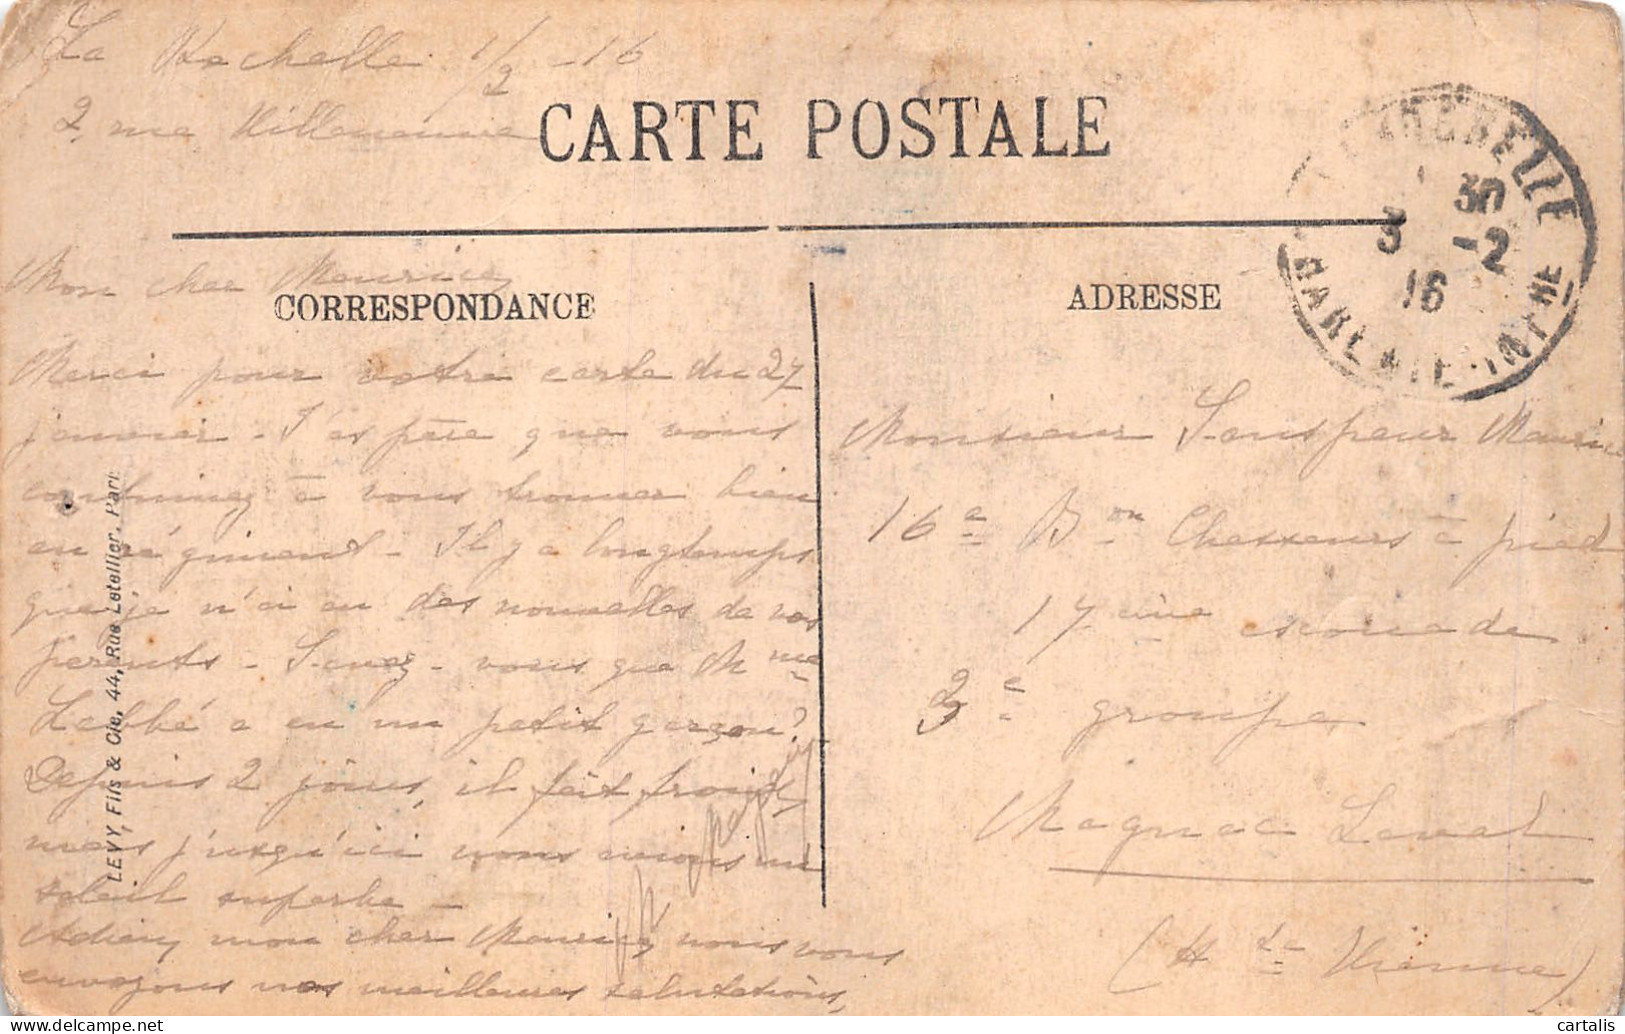 La Rochelle 1/2 -16
2, rue Villeneuve
CARTE POSTALE
LA ROCHELLE
30
3 -2
16
CHARENTE-INFRE
CORRESPONDANCE
ADRESSE
Mon cher Maurice,
Merci pour votre carte du 27
janvier - J'espère que vous
continuez à vous trouver bien
au régiment - Il y a longtemps
que je n'ai eu des nouvelles de vos
parents - Savez-vous que Mme
Labbé a eu un petit garçon?
Depuis 2 jours, il fait froid,
mais jusqu'ici nous avions un
soleil superbe -
Adieu, mon cher Maurice, nous vous
envoyons nos meilleures salutations,
Monsieur Sanspeur Maurice
16e Bon Chasseurs à pied
17ème escouade
3e groupe
Magnac Laval
(Hte Vienne)
LEVY Fils & Cie, 44, Rue Letellier, Paris
cartalis
delcampe.net